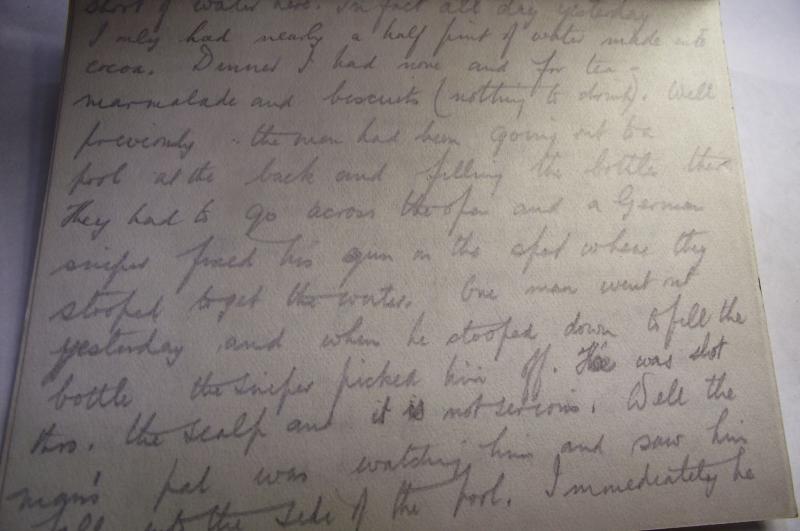 short of water here. In fact all day yesterday
I only had nearly a half pint of water made into
cocoa. Dinner I had none and for tea -
marmalade and biscuits (nothing to drink). Well
previously the men had been going out to a
pool at the back and filling the bottles there
They had to go across the open and a German
sniper fixed his gun on the spot where they
stooped to get the water. One man went out
yesterday and when he stooped down to fill the
bottle the sniper picked him off. He was shot
thro. the scalp and it is not serious. Well the
man's pal was watching him and saw him
fall into the side of the pool. Immediately he